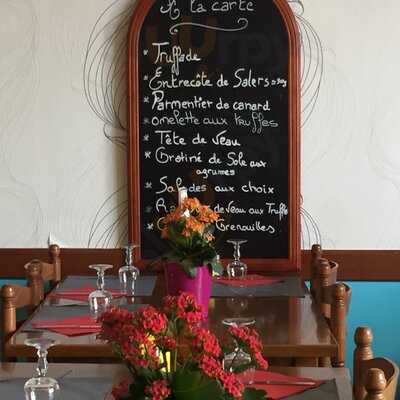 A la carte
* Truffade
* Entrecôte de Salers
* Parmentier de canard
* omelette aux truffes
* Tête de veau
* Gratiné de Sole aux
agrumes
* Salades aux choix
de veau aux Truffes
Grenouilles